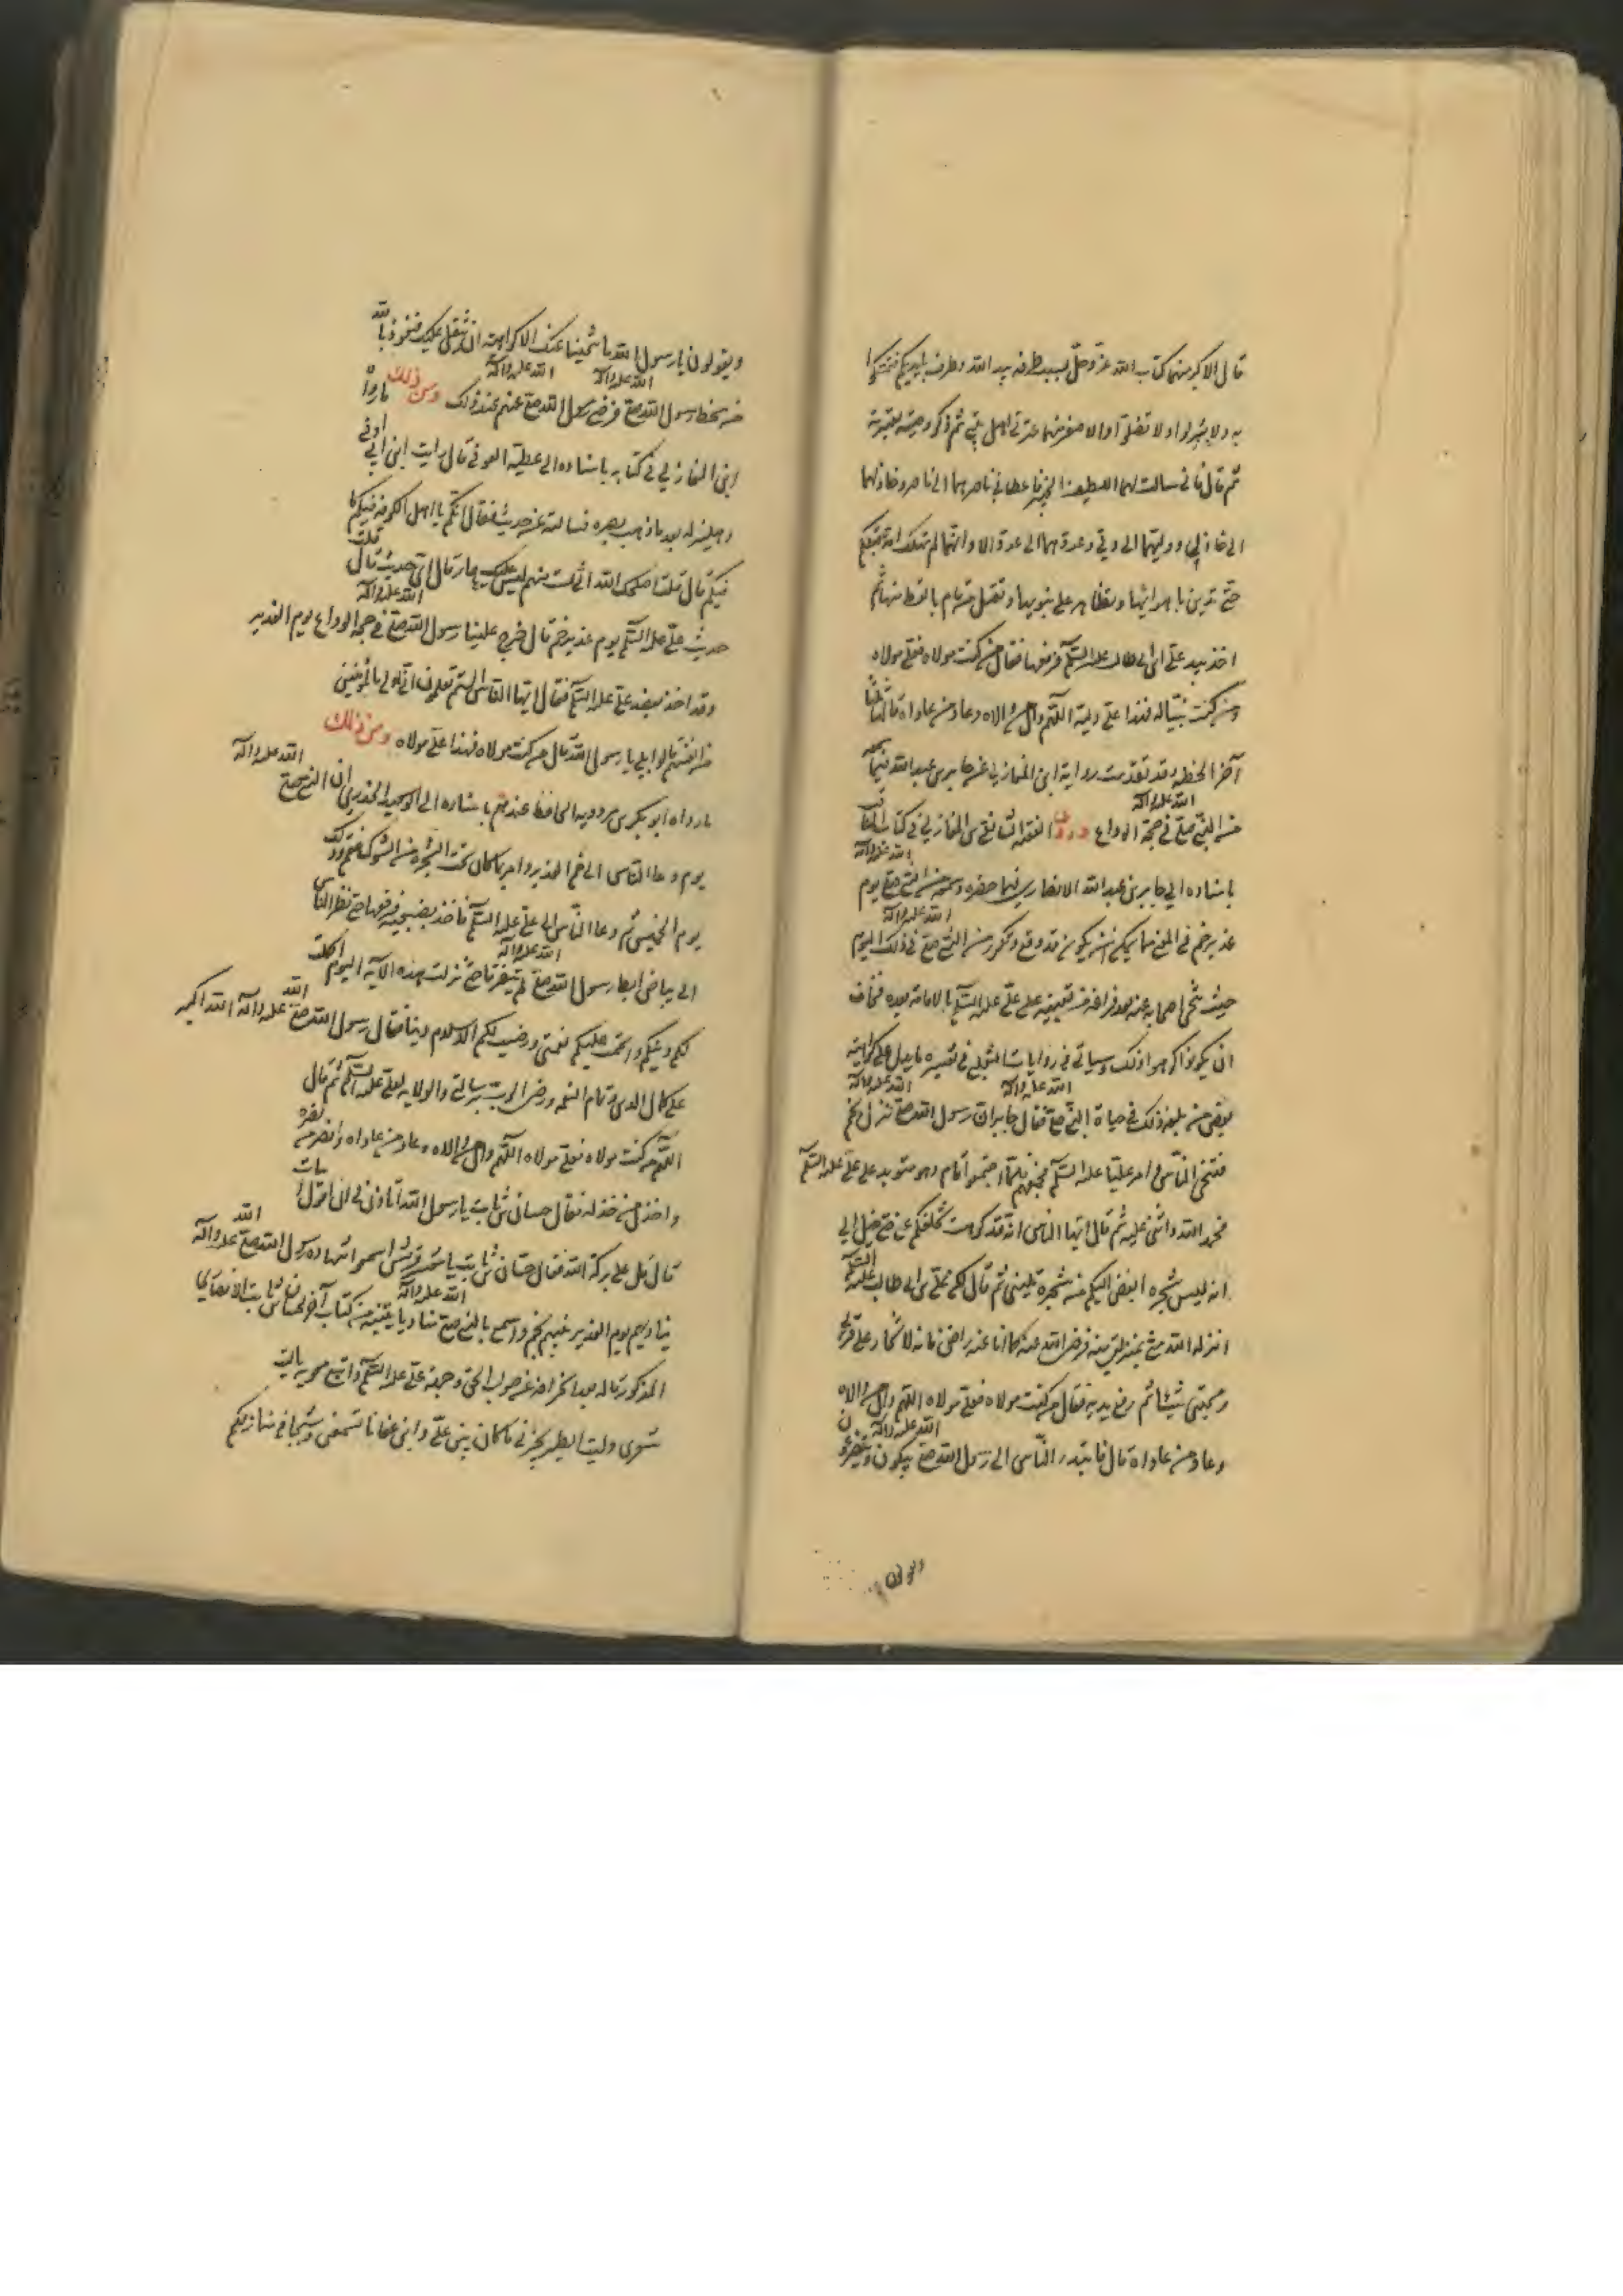 قال الاكبر منهما كتاب الله عز وجل سبب طرفه بيد الله وطرف بايديكم فتمسكوا
به ولا تزلوا ولا تضلوا والاصغر منهما عترتي اهل بيتي ثم ذكر وصيته بعترته
ثم قال فاني سالت لهما اللطيف الخبير فاعطاني ناصرهما الي ناصر وخاذلهما
الي خاذل ووليهما الي ولي وعدوهما الي عدو الا وانها لم تهلك امة قبلكم
حتى تدين باهوائها وتظاهر على نبوتها وتقتل من قام بالقسط منها ثم
اخذ بيد علي ابن ابي طالب عليه السلم فرفعها فقال من كنت مولاه فعلي مولاه
ومن كنت وليه فهذا علي وليه اللهم وال من والاه وعاد من عاداه قالها ثلثا
آخر الخطبه وقد تقدمت رواية ابن المغازلي عن جابر بن عبد الله فيما سمعه
من النبي صلى الله عليه وآله في حجة الوداع وروى الفقيه الشافعي بن المغازلي في كتاب المناقب
باسناده الي جابر بن عبد الله الانصاري فيما حضره وسمعه من النبي صلى الله عليه وآله يوم
غدير خم في المعنى ما يمكن ان يكون قد وقع وتكرر من النبي صلى الله عليه وآله في ذلك اليوم
حيث تنحى اصحابه عنه بعد فراغه من تعيينه على علي عليه السلم بالامامة بعده فخاف
ان يكونوا كرهوا ذلك وسياتي في روايات الثعلبي في تفسيره ما يدل على كراهته
بعض من بلغه ذلك في حياة النبي صلى الله عليه وآله فقال جابر ان رسول الله صلى الله عليه وآله نزل بخم
فتنحى الناس وامر عليا عليه السلم فجمعهم فلما اجتمعوا قام وهو متوسد على علي عليه السلم
فحمد الله واثنى عليه ثم قال ايها الناس انه قد كرهت تخلفكم عني حتى خيل الي
انه ليس شجرة ابغض اليكم من شجرة تليني ثم قال لكن علي بن ابي طالب عليه السلم
انزله الله مني بمنزلتي منه فرضي الله عنه كما انا عنه راض فانه لا يختار على قربي
ومحبتي شيئا ثم رفع يديه فقال من كنت مولاه فعلي مولاه اللهم وال من والاه
وعاد من عاداه قال فابتدر الناس الى رسول الله صلى الله عليه وآله يبكون ويتضرعون
ويقولون يا رسول الله ما تنحينا عنك الا كراهة ان نثقل عليك فنعوذ بالله
من سخط رسول الله صلى الله عليه وآله فرضي رسول الله صلى الله عليه وآله عنهم عند ذلك ومن ذلك ما رواه
ابن المغازلي في كتابه باسناده الى عطية العوفي قال رايت ابن ابي اوفى
دهليز له بعد ما ذهب بصره فسالته عن حديث فقال انكم يا اهل الكوفة فيكم ما
فيكم قال قلت اصلحك الله اني لست منهم ليس عليك عار قال اي حديث قال قلت
حديث علي عليه السلم يوم غدير خم قال خرج علينا رسول الله صلى الله عليه وآله في حجة الوداع يوم الغدير
وقد اخذ بعضد علي عليه السلم فقال ايها الناس الستم تعلمون اني اولى بالمؤمنين
من انفسهم قالوا بلى يا رسول الله قال من كنت مولاه فهذا علي مولاه ومن ذلك
ما رواه ابو بكر بن مردويه الحافظ عندهم باسناده الى ابي سعيد الخدري ان النبي صلى الله عليه وآله
يوم دعا الناس الى غدير خم وامر بما كان تحت الشجرة من الشوك فقم وذلك
يوم الخميس ثم دعا الناس الى علي عليه السلم فاخذ بضبعيه فرفعها حتى نظر الناس
الى بياض ابط رسول الله صلى الله عليه وآله لم يتفرقا حتى نزلت هذه الآية اليوم اكملت
لكم دينكم واتممت عليكم نعمتي ورضيت لكم الاسلام دينا فقال رسول الله صلى الله عليه وآله الله اكبر
على كمال الدين وتمام النعمه ورضى الرب برسالتي والولاية لعلي عليه السلم ثم قال
اللهم من كنت مولاه فعلي مولاه اللهم وال من والاه وعاد من عاداه وانصر من نصره
واخذل من خذله فقال حسان بن ثابت يا رسول الله اتاذن لي ان اقول ابيات
قال قل على بركة الله فقال حسان بن ثابت يا معشر قريش اسمعوا شهادة رسول الله صلى الله عليه وآله
يناديهم يوم الغدير نبيهم بخم واسمع بالنبي صلى الله عليه وآله مناديا بقية من كتاب آخر لحسان بن ثابت الانصاري
المذكور قاله بعد انحرافه عن صوب الحق وجهة علي عليه السلم واتبع معوية
شعري وليت الطير يخبرني ما كان بين علي وابن عفانا لتسمعن وشيكا في منازلكم